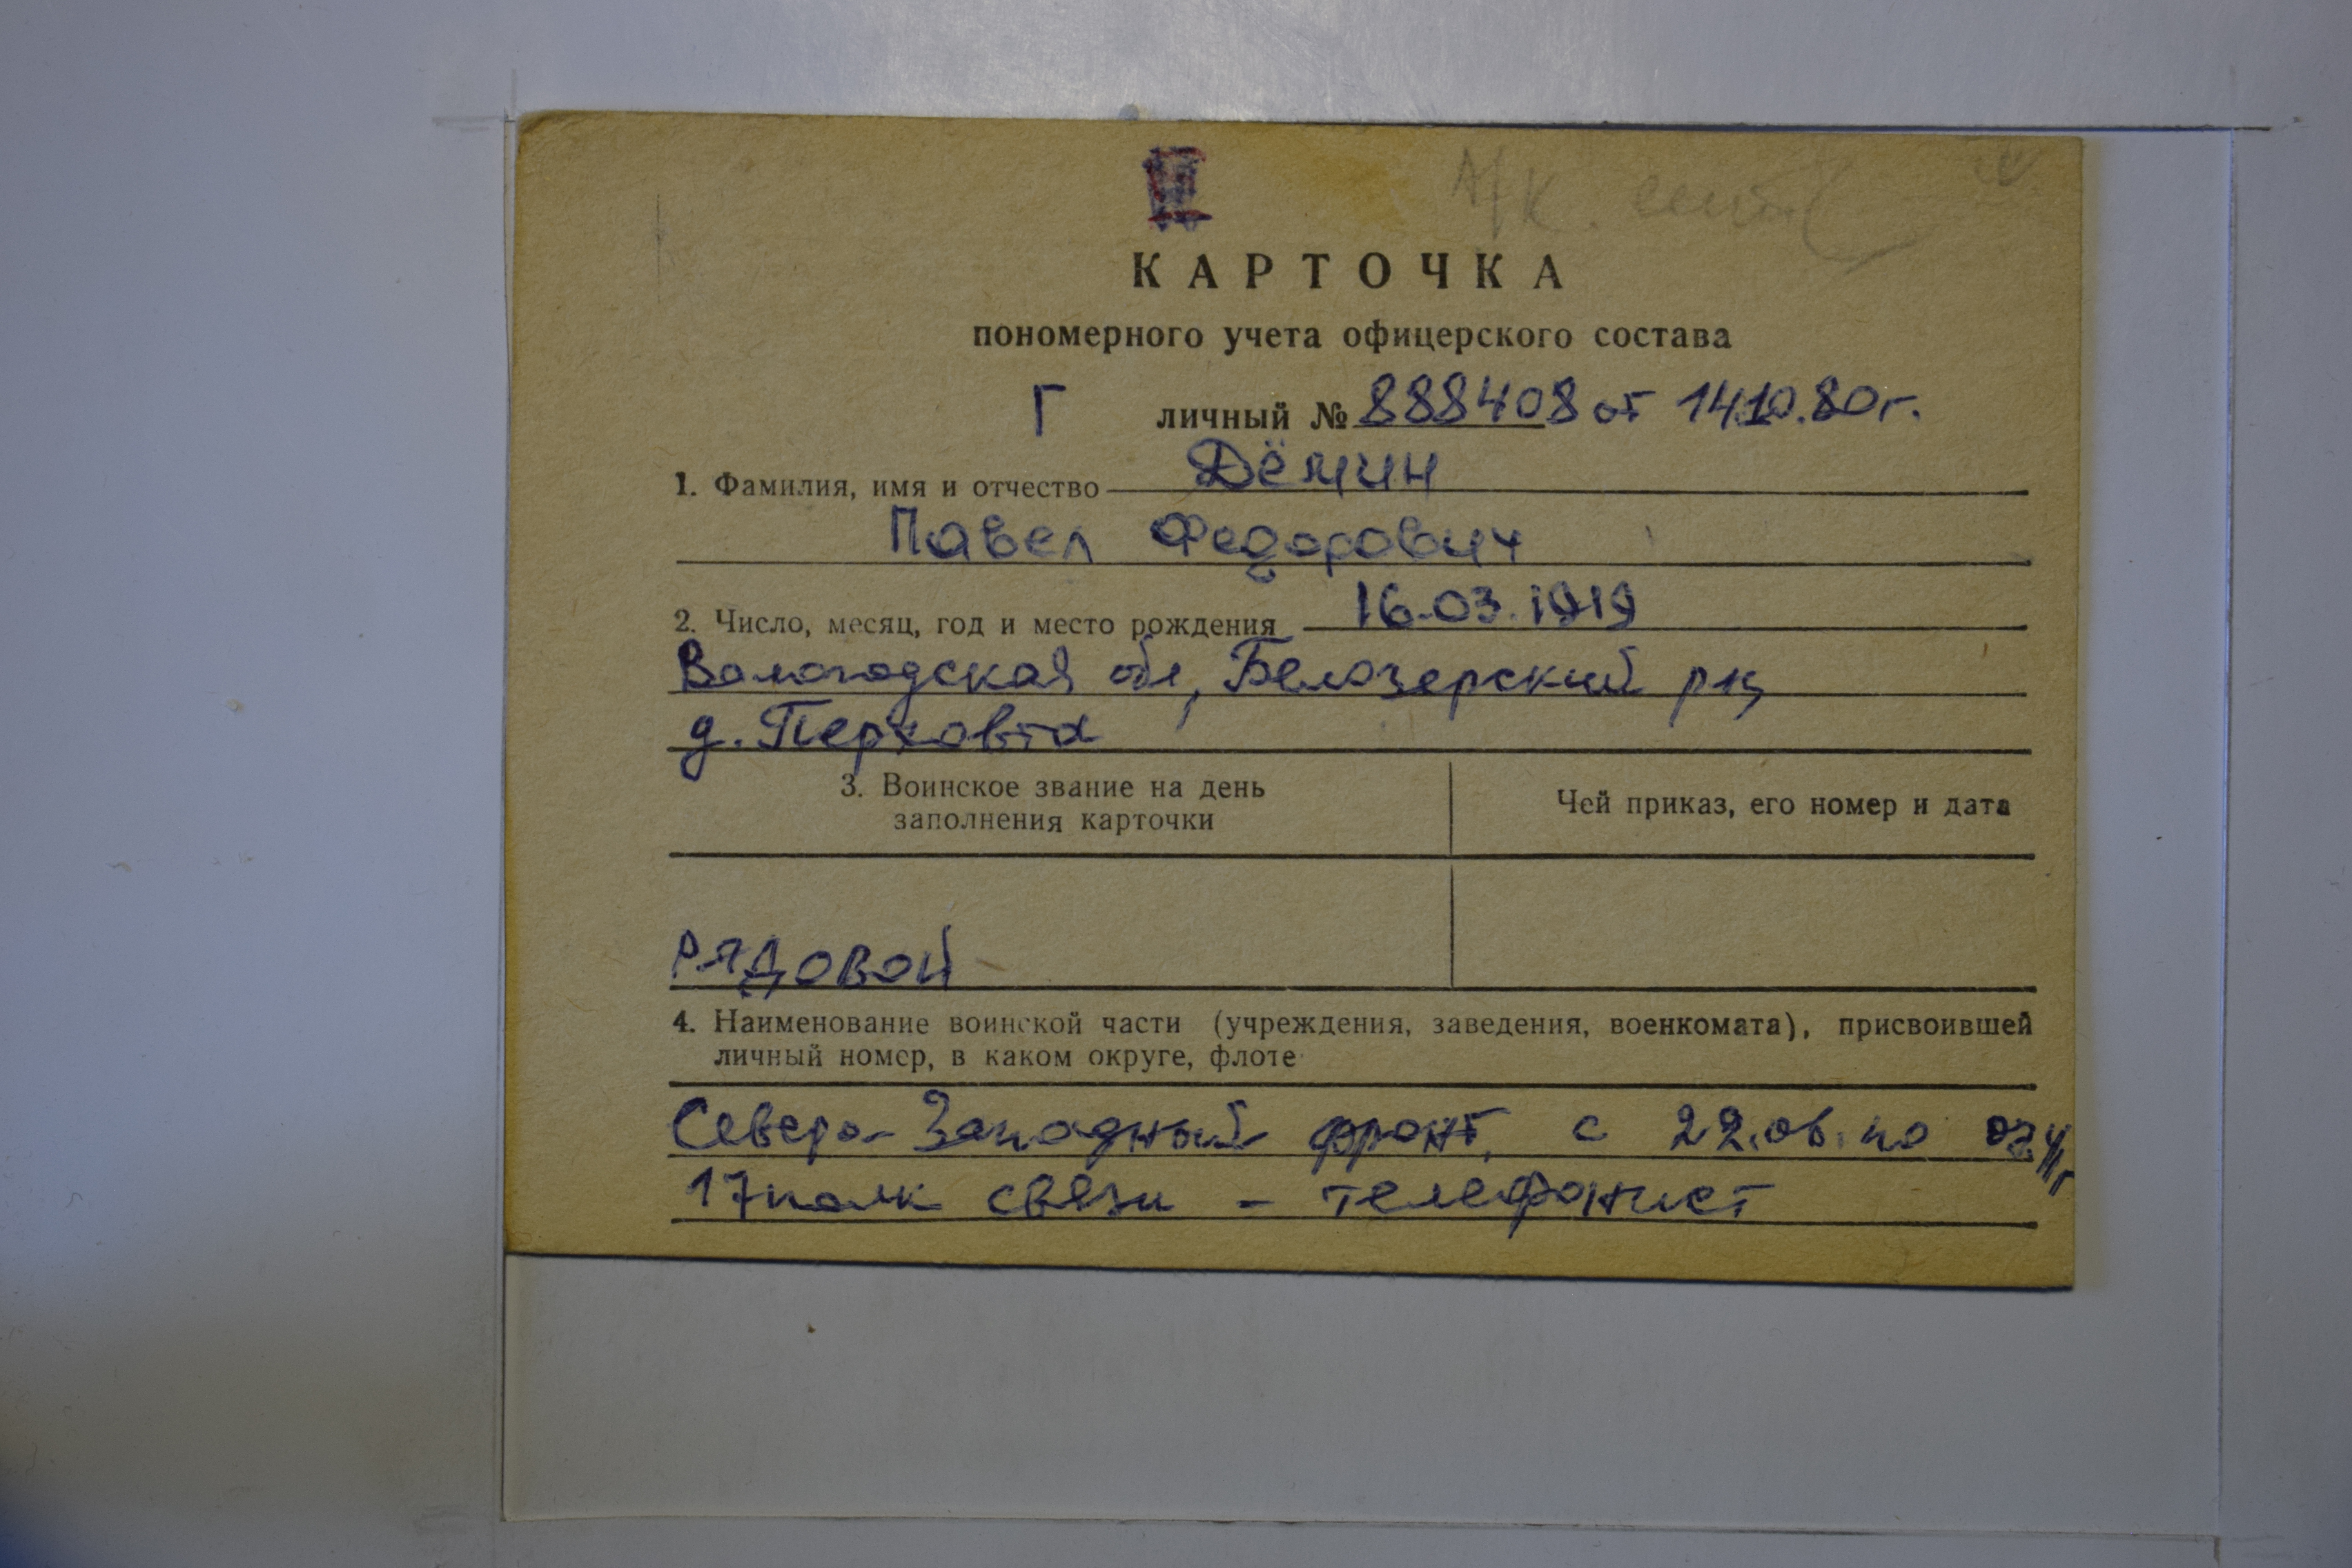 А/К
КАРТОЧКА
пономерного учета офицерского состава
Г личный № 888408 от 14.10.80г.
1. Фамилия, имя и отчество Дёмин
Павел Федорович
2. Число, месяц, год и место рождения 16.03.1919
Вологодская обл, Белозерский рц
д. Перховта
3. Воинское звание на день
заполнения карточки
Чей приказ, его номер и дата
РЯДОВОЙ
4. Наименование воинской части (учреждения, заведения, военкомата), присвоившей
личный номер, в каком округе, флоте
Северо-Западный фронт, с 22.06. по
17 полк связи - телефонист